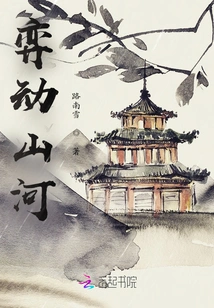 弈动山河
路南雪
著
云起书院